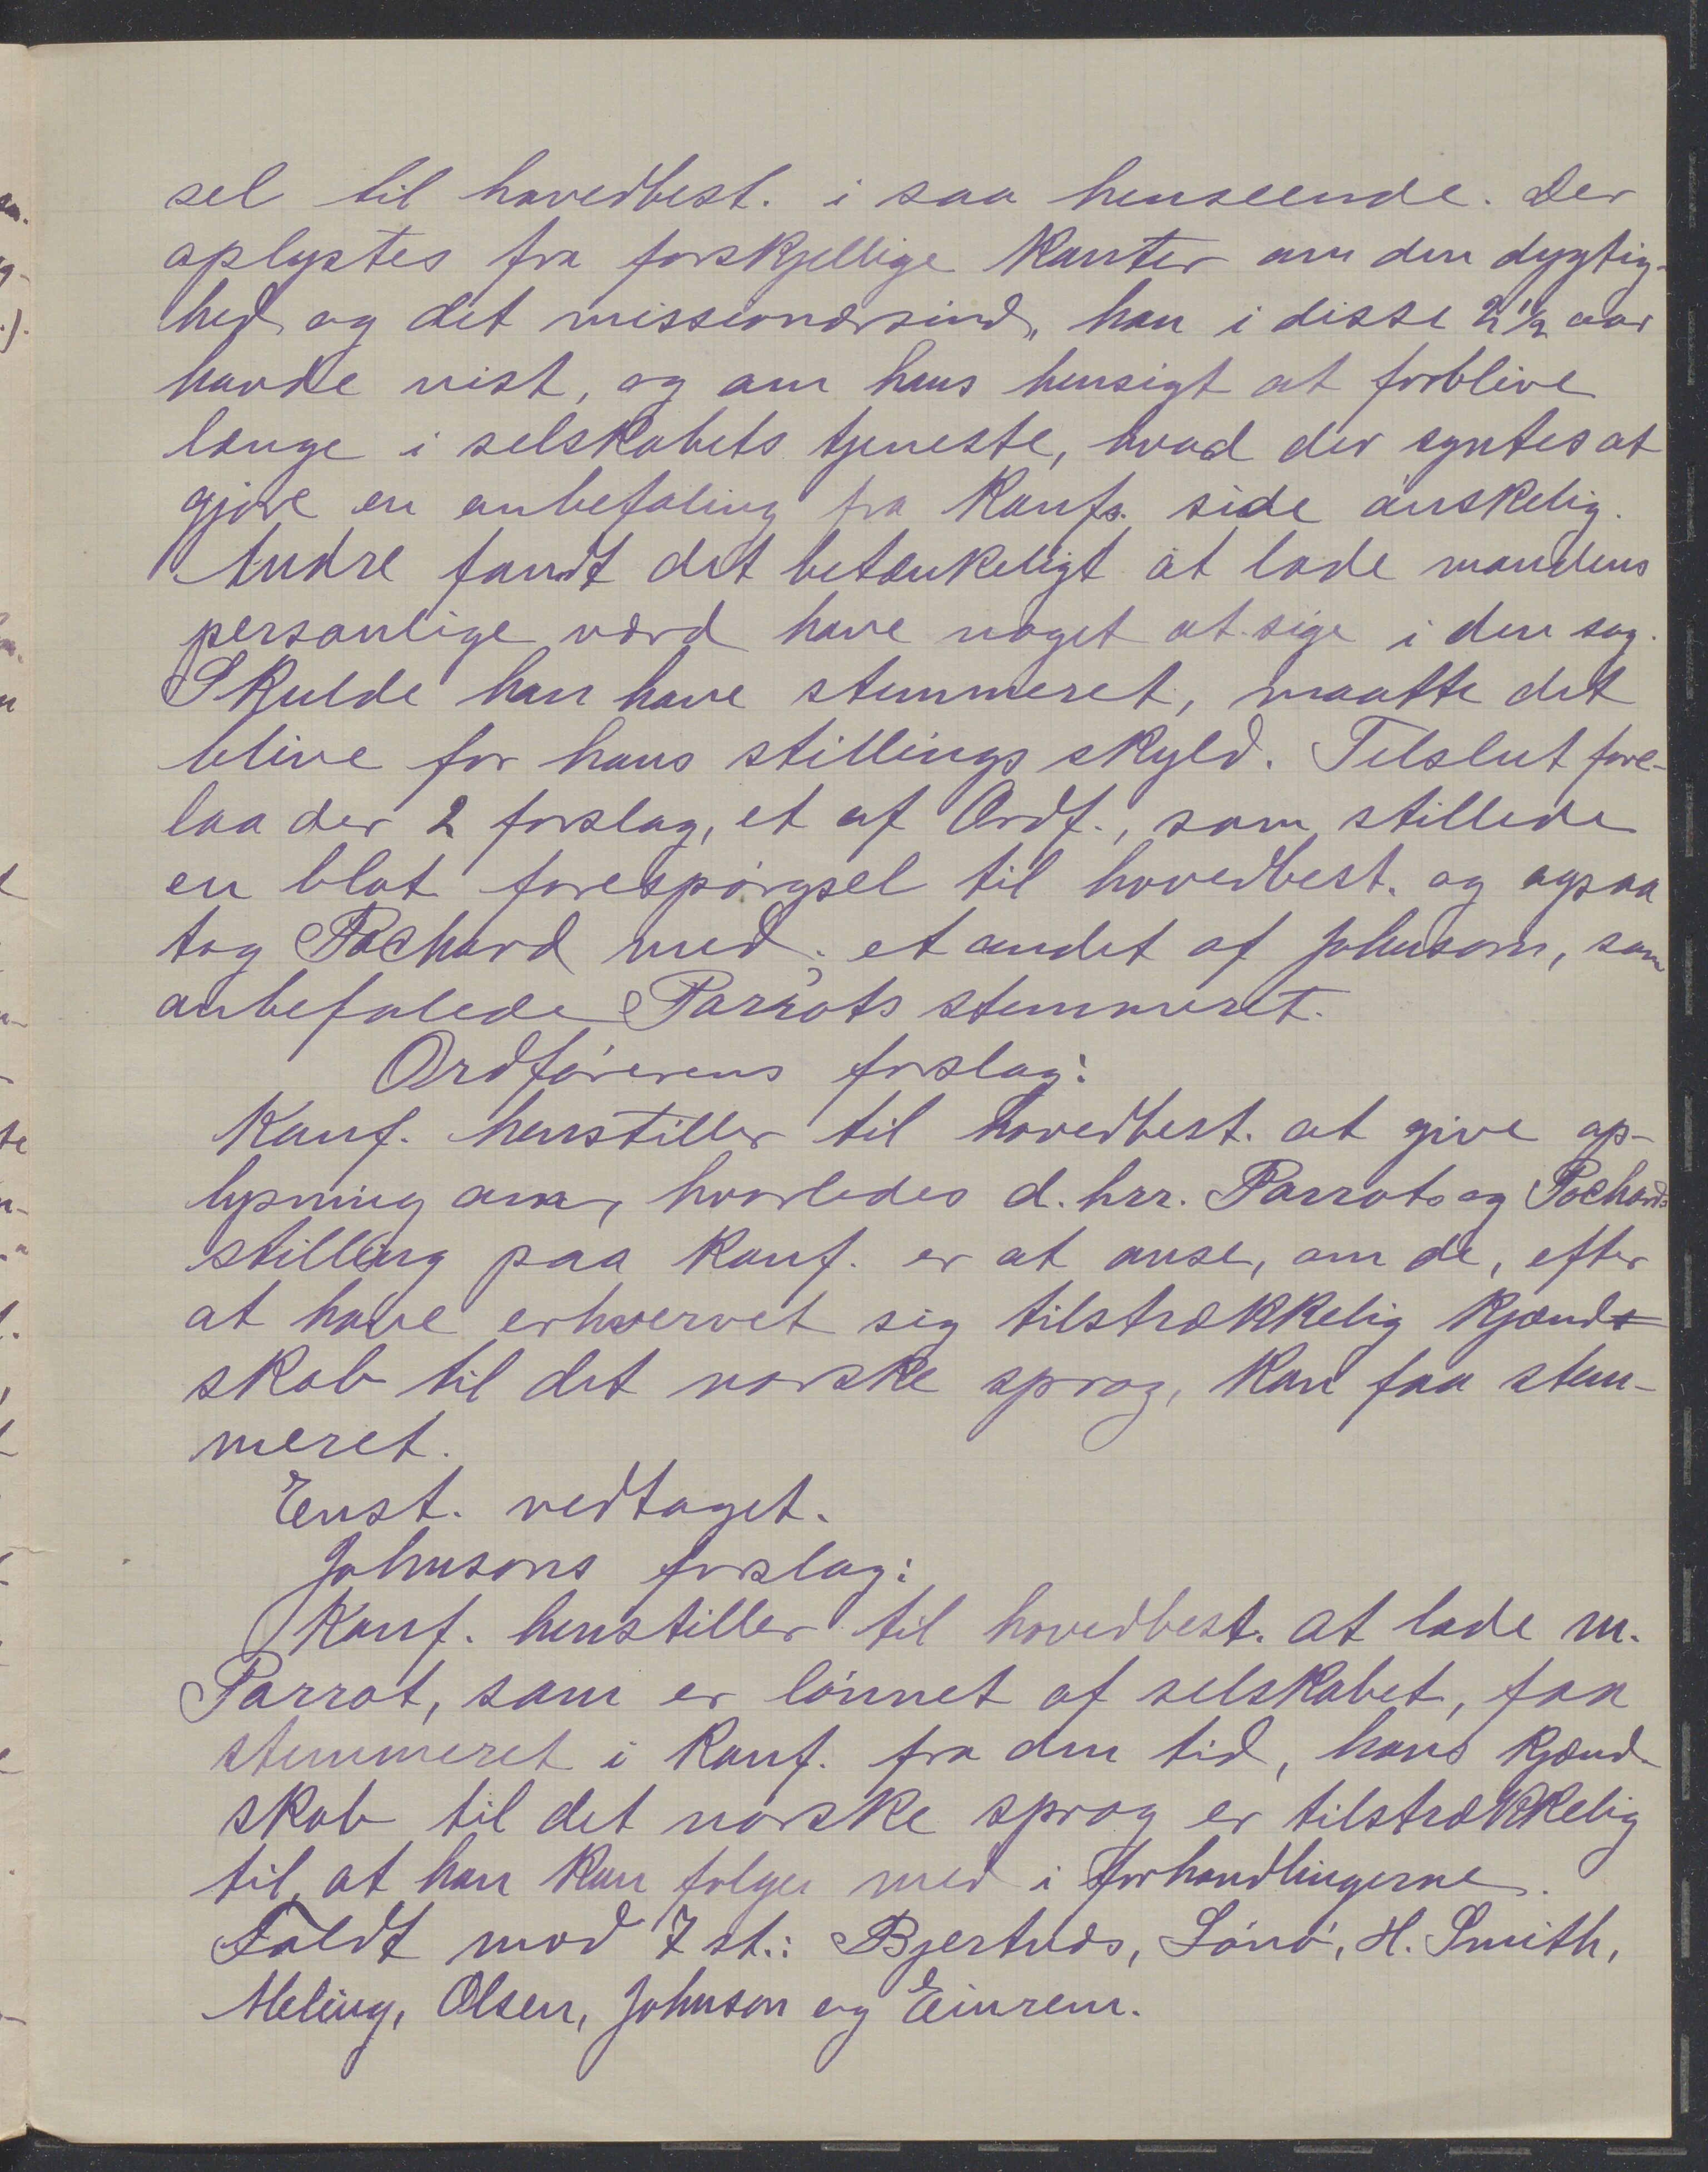 sel til hovedbest. i saa henseende. Der
oplystes fra forskjellige kanter om den dygtig-
hed og det missionærsind, han i disse 2 1/2 aar
havde vist, og om hans hensigt at forblive
længe i selskabets tjeneste, hvad der syntes at
gjøre en anbefaling fra konfs. side ønskelig.
Andre fandt det betænkeligt at lade mandens
personlige værd have noget at sige i den sag.
Skulde han have stemmeret, maatte det
blive for hans stillings skyld. Tilslut fore-
laa der 2 forslag, et af Ordf., som stillede
en blot forespørgsel til hovedbest. og ogsaa
tog Pochard med; et andet af Johnson, som
anbefalede Parrots stemmeret.
Ordførerens forslag:
Konf. henstiller til hovedbest. at give op-
lysning om, hvorledes d. hrr. Parrots og Pochards
stilling paa konf. er at anse, om de, efter
at have erhvervet sig tilstrækkelig kjend-
skab til det norske sprog, kan faa stem-
meret.
Enst. vedtaget.
Johnsons forslag:
Konf. henstiller til hovedbest. at lade m.
Parrot, som er lønnet af selskabet, faa
stemmeret i konf. fra den tid, hans kjend-
skab til det norske sprog er tilstrækkelig
til, at han kan følge med i forhandlingerne.
Faldt mod 7 st.: Bjertnæs, Lønø, H. Smith,
Meling, Olsen, Johnson og Einrem.